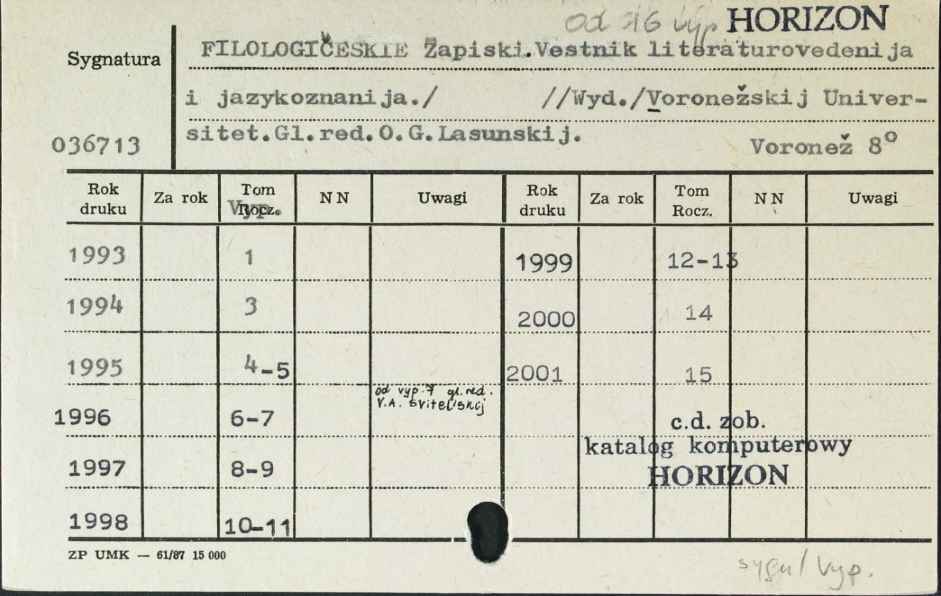 od 16 vyp. HORIZON
Sygnatura
FILOLOGIČESKIE Žapiski.Vestnik literaturovedenija
i jazykoznanija./ //Wyd./Voronežskij Univer-
sitet.Gl.red.O.G.Lasunskij.
036713
Voronež 8º
Rok druku Za rok Tom Rocz. Vyp. NN Uwagi Rok druku Za rok Tom Rocz. NN Uwagi
1993 1 1999 12-13
1994 3 2000 14
1995 4-5 2001 15
od vyp. 7 gl. red.
V.A. Svitel'skij
1996 6-7 c.d. zob.
katalog komputerowy
1997 8-9 HORIZON
1998 10-11
ZP UMK — 61/87 15 000
sygn/ Vyp.